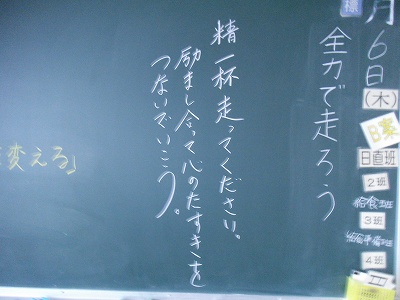 月
6
日
(木)
標
日直班
2班
給食当班
3班
4班
全力で走ろう
精一杯走ってください。
励まし合って心のたすきを
つないでいこう。
変える」